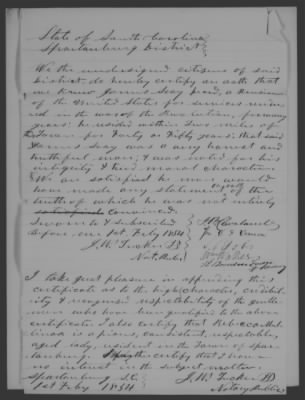 State of South Carolina
Spartanburg District
We the undersigned citizens of said
District do hereby certify on oath that
we knew James Seay decd, a Pensioner
of the United States for services render
ed in the war of the Revolution, many
years; he resided within two miles of
the Town for Forty or Fifty years; that said
James Seay was a very honest and
truthful man; & was noted for his
integrity & fine moral character
We are satisfied he never would
have made any statement on oath of the
truth of which he was not entirely
satisfied convinced
Sworn to & subscribed
before me 1st Feby 1854
J. W. Tucker
Not. Pub.
I take great pleasure in appending this
certificate as to the high character, credibil-
ity & recognised respectability of the gentle-
men who have been qualified to the above
certificate. I also certify that
is a pious, consistent, respectable,
aged lady, resident in the Town of Spar-
tanburg. I certify that I have
no interest in the subject matter.
Spartanburg S.C.
1st Feby 1854
J. W. Tucker
Notary Public